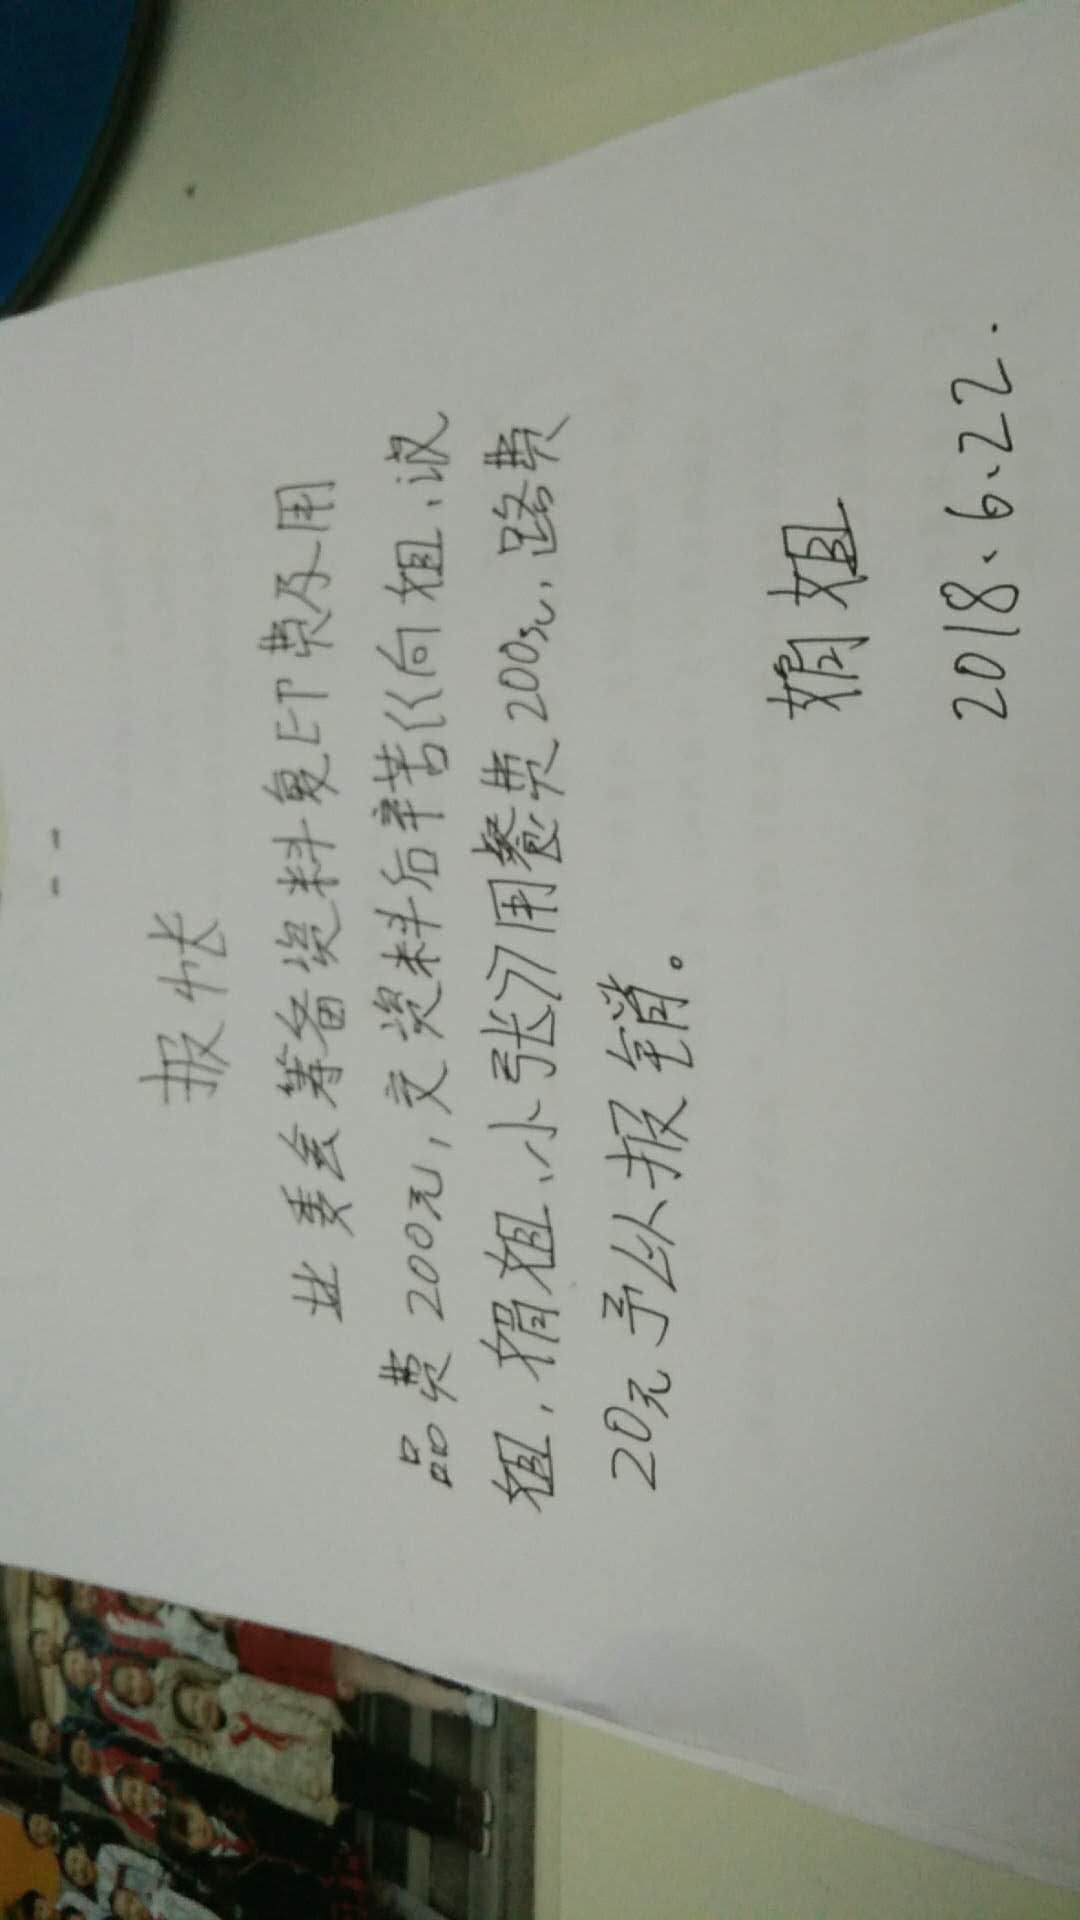 报帐
业委会筹备资料复印费及用
品费200元,交资料后辛苦((向姐、淑
姐、娟姐、小张))用餐费200元、路费
20元予以报销。
娟姐
2018.6.22.